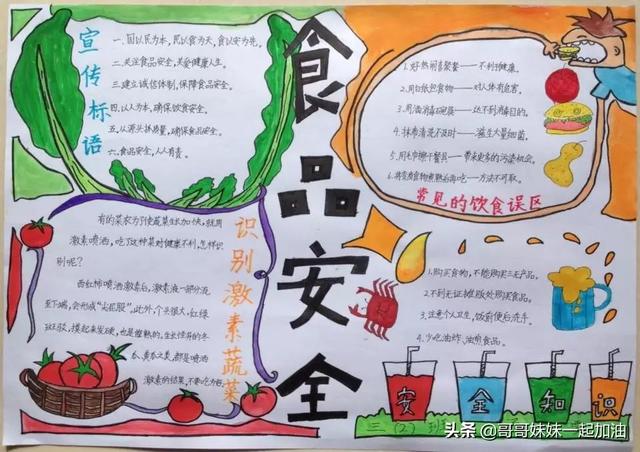 食品安全
宣传标语
一、国以民为本，民以食为天，食以安为先。
二、关注食品安全，关爱健康人生。
三、建立诚信体制，保障食品安全。
四、以人为本，确保饮食安全。
五、从源头抓质量，确保食品安全。
六、食品安全，人人有责。
1.好热闹喜聚餐——不利于健康。
2.用白纸包食物——对人体有危害。
3.用酒消毒碗筷——达不到消毒目的。
4.抹布清洗不及时——滋生大量细菌。
5.用毛巾擦干餐具——带来更多的污染机会。
6.将变质食物煮熟后再吃——方法不可取。
常见的饮食误区
识别激素蔬菜
有的菜农为了使蔬菜生长加快，就用
激素喷洒，吃了这种菜对健康不利，怎样识
别呢？
西红柿喷洒激素后，激素液一部分流
至下端，会形成“尖屁股”，此外，个头很大，红绿
斑驳，摸起来发硬，也是催熟的，生长异常的冬
瓜、黄瓜之类，都是喷洒
激素的结果，不要吃为好
1.购买食物，不能购买三无产品。
2.不到无证摊贩处购买食品。
3.注意个人卫生，饭前便后洗手。
4.少吃油炸、油煎食品。
安全知识
三（2）班
头条 @哥哥妹妹一起加油